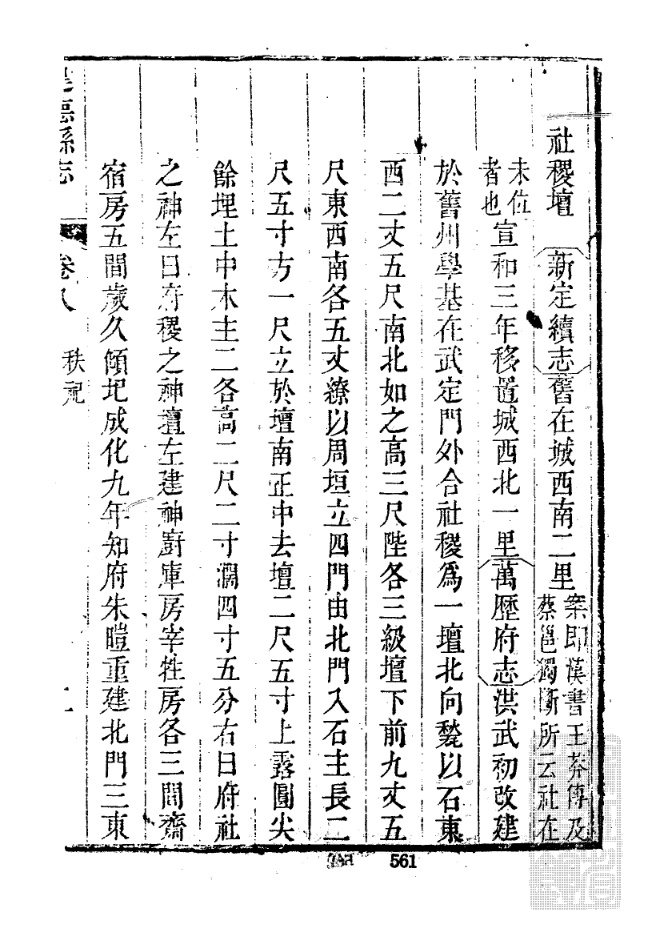 社稷壇　新定續志舊在城西南二里案即漢書王莽傳及蔡邕獨斷所云社在
未位者也宣和三年移置城西北一里萬歷府志洪武初改建
於舊州學基在武定門外合社稷爲一壇北向甃以石東
西二丈五尺南北如之高三尺陛各三級壇下前九丈五
尺東西南各五丈繚以周垣立四門由北門入石主長二
尺五寸方一尺立於壇南正中去壇二尺五寸上露圓尖
餘埋土中木主二各高二尺二寸濶四寸五分右曰府社
之神左曰府稷之神壇左建神廚庫房宰牲房各三間齋
宿房五間歲久傾圮成化九年知府朱暟重建北門三東
德縣志　卷八　秩祀
561